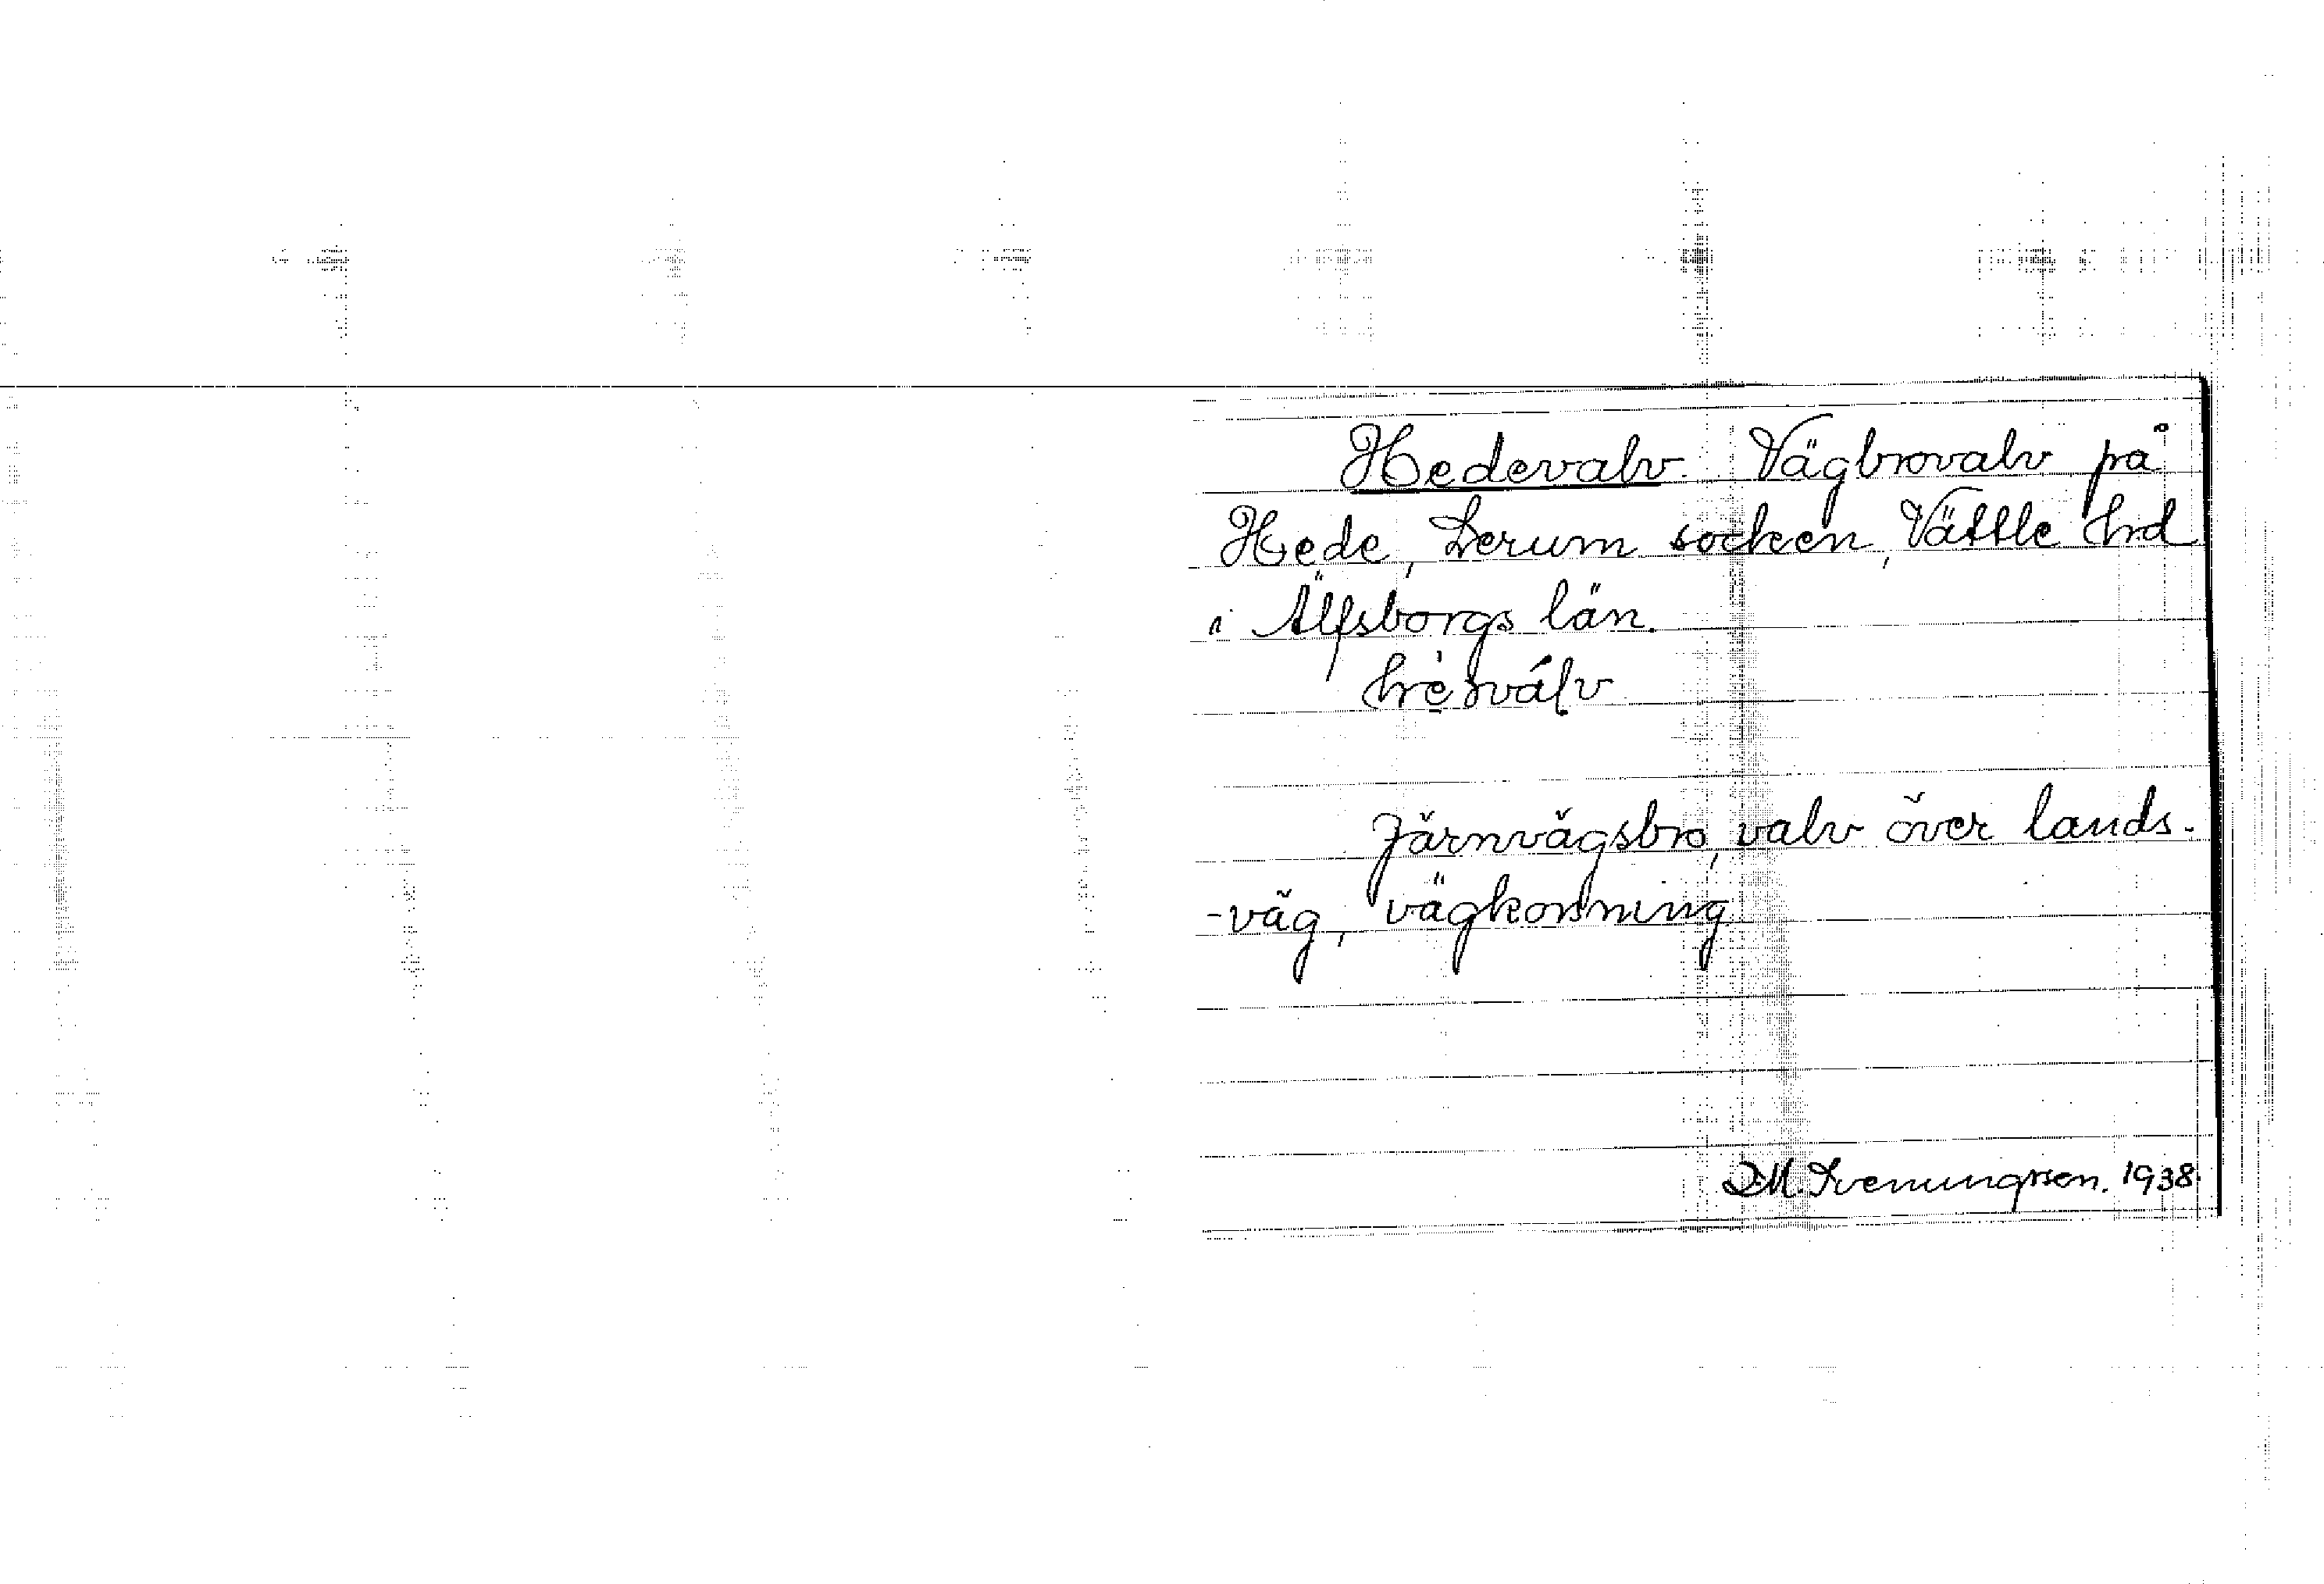 Hedevalv. Vägbrovalv på
Hede, Lerum socken, Vättle hrd
i Älfsborgs län.
Järnvägsbro, valv över lands-
-väg, vägkorsning
1938.